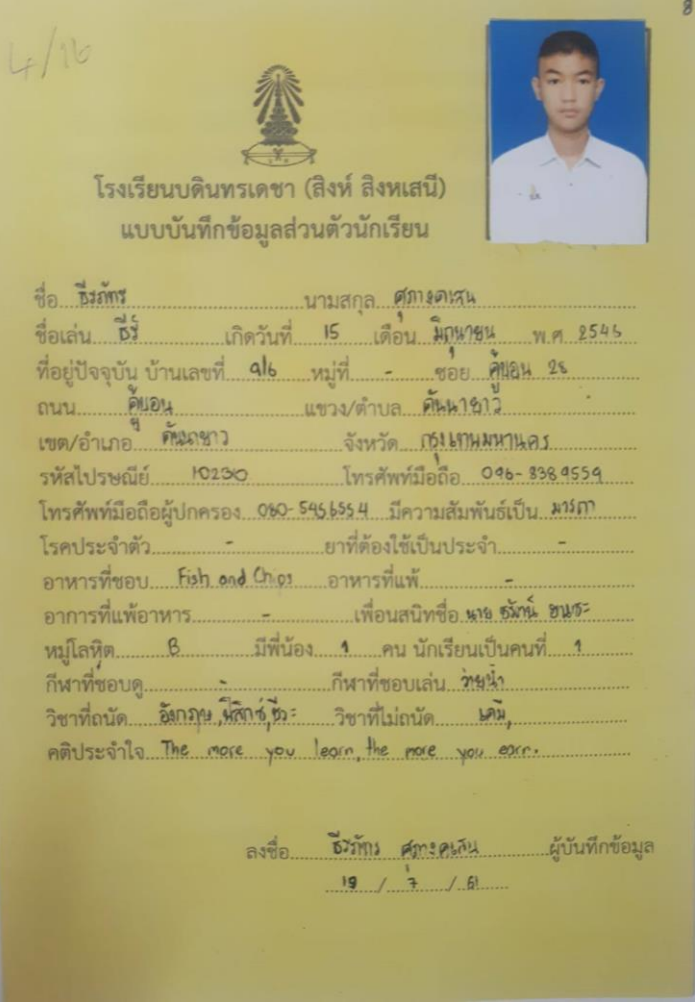 8
4/16
โรงเรียนบดินทรเดชา (สิงห์ สิงหเสนี)
แบบบันทึกข้อมูลส่วนตัวนักเรียน
ชื่อ ธีรภัทร นามสกุล ศุภางคเสน
ชื่อเล่น ธีร์ เกิดวันที่ 15 เดือน มิถุนายน พ.ศ 2545
ที่อยู่ปัจจุบัน บ้านเลขที่ 9/6 หมู่ที่ - ซอย คู้บอน 28
ถนน คู้บอน แขวง/ตำบล คันนายาว
เขต/อำเภอ คันนายาว จังหวัด กรุงเทพมหานคร
รหัสไปรษณีย์ 10230 โทรศัพท์มือถือ 096-8389559
โทรศัพท์มือถือผู้ปกครอง 080-5456554 มีความสัมพันธ์เป็น มารดา
โรคประจำตัว - ยาที่ต้องใช้เป็นประจำ -
อาหารที่ชอบ Fish and Chips อาหารที่แพ้ -
อาการที่แพ้อาหาร - เพื่อนสนิทชื่อ นาย
หมู่โลหิต B มีพี่น้อง 1 คน นักเรียนเป็นคนที่ 1
กีฬาที่ชอบดู - กีฬาที่ชอบเล่น ว่ายน้ำ
วิชาที่ถนัด อังกฤษ, ฟิสิกซ์, ชีวะ วิชาที่ไม่ถนัด เคมี,
คติประจำใจ The more you learn, the more you earn.
ลงชื่อ ธีรภัทร ศุภางคเสน ผู้บันทึกข้อมูล
19 / 7 / 61